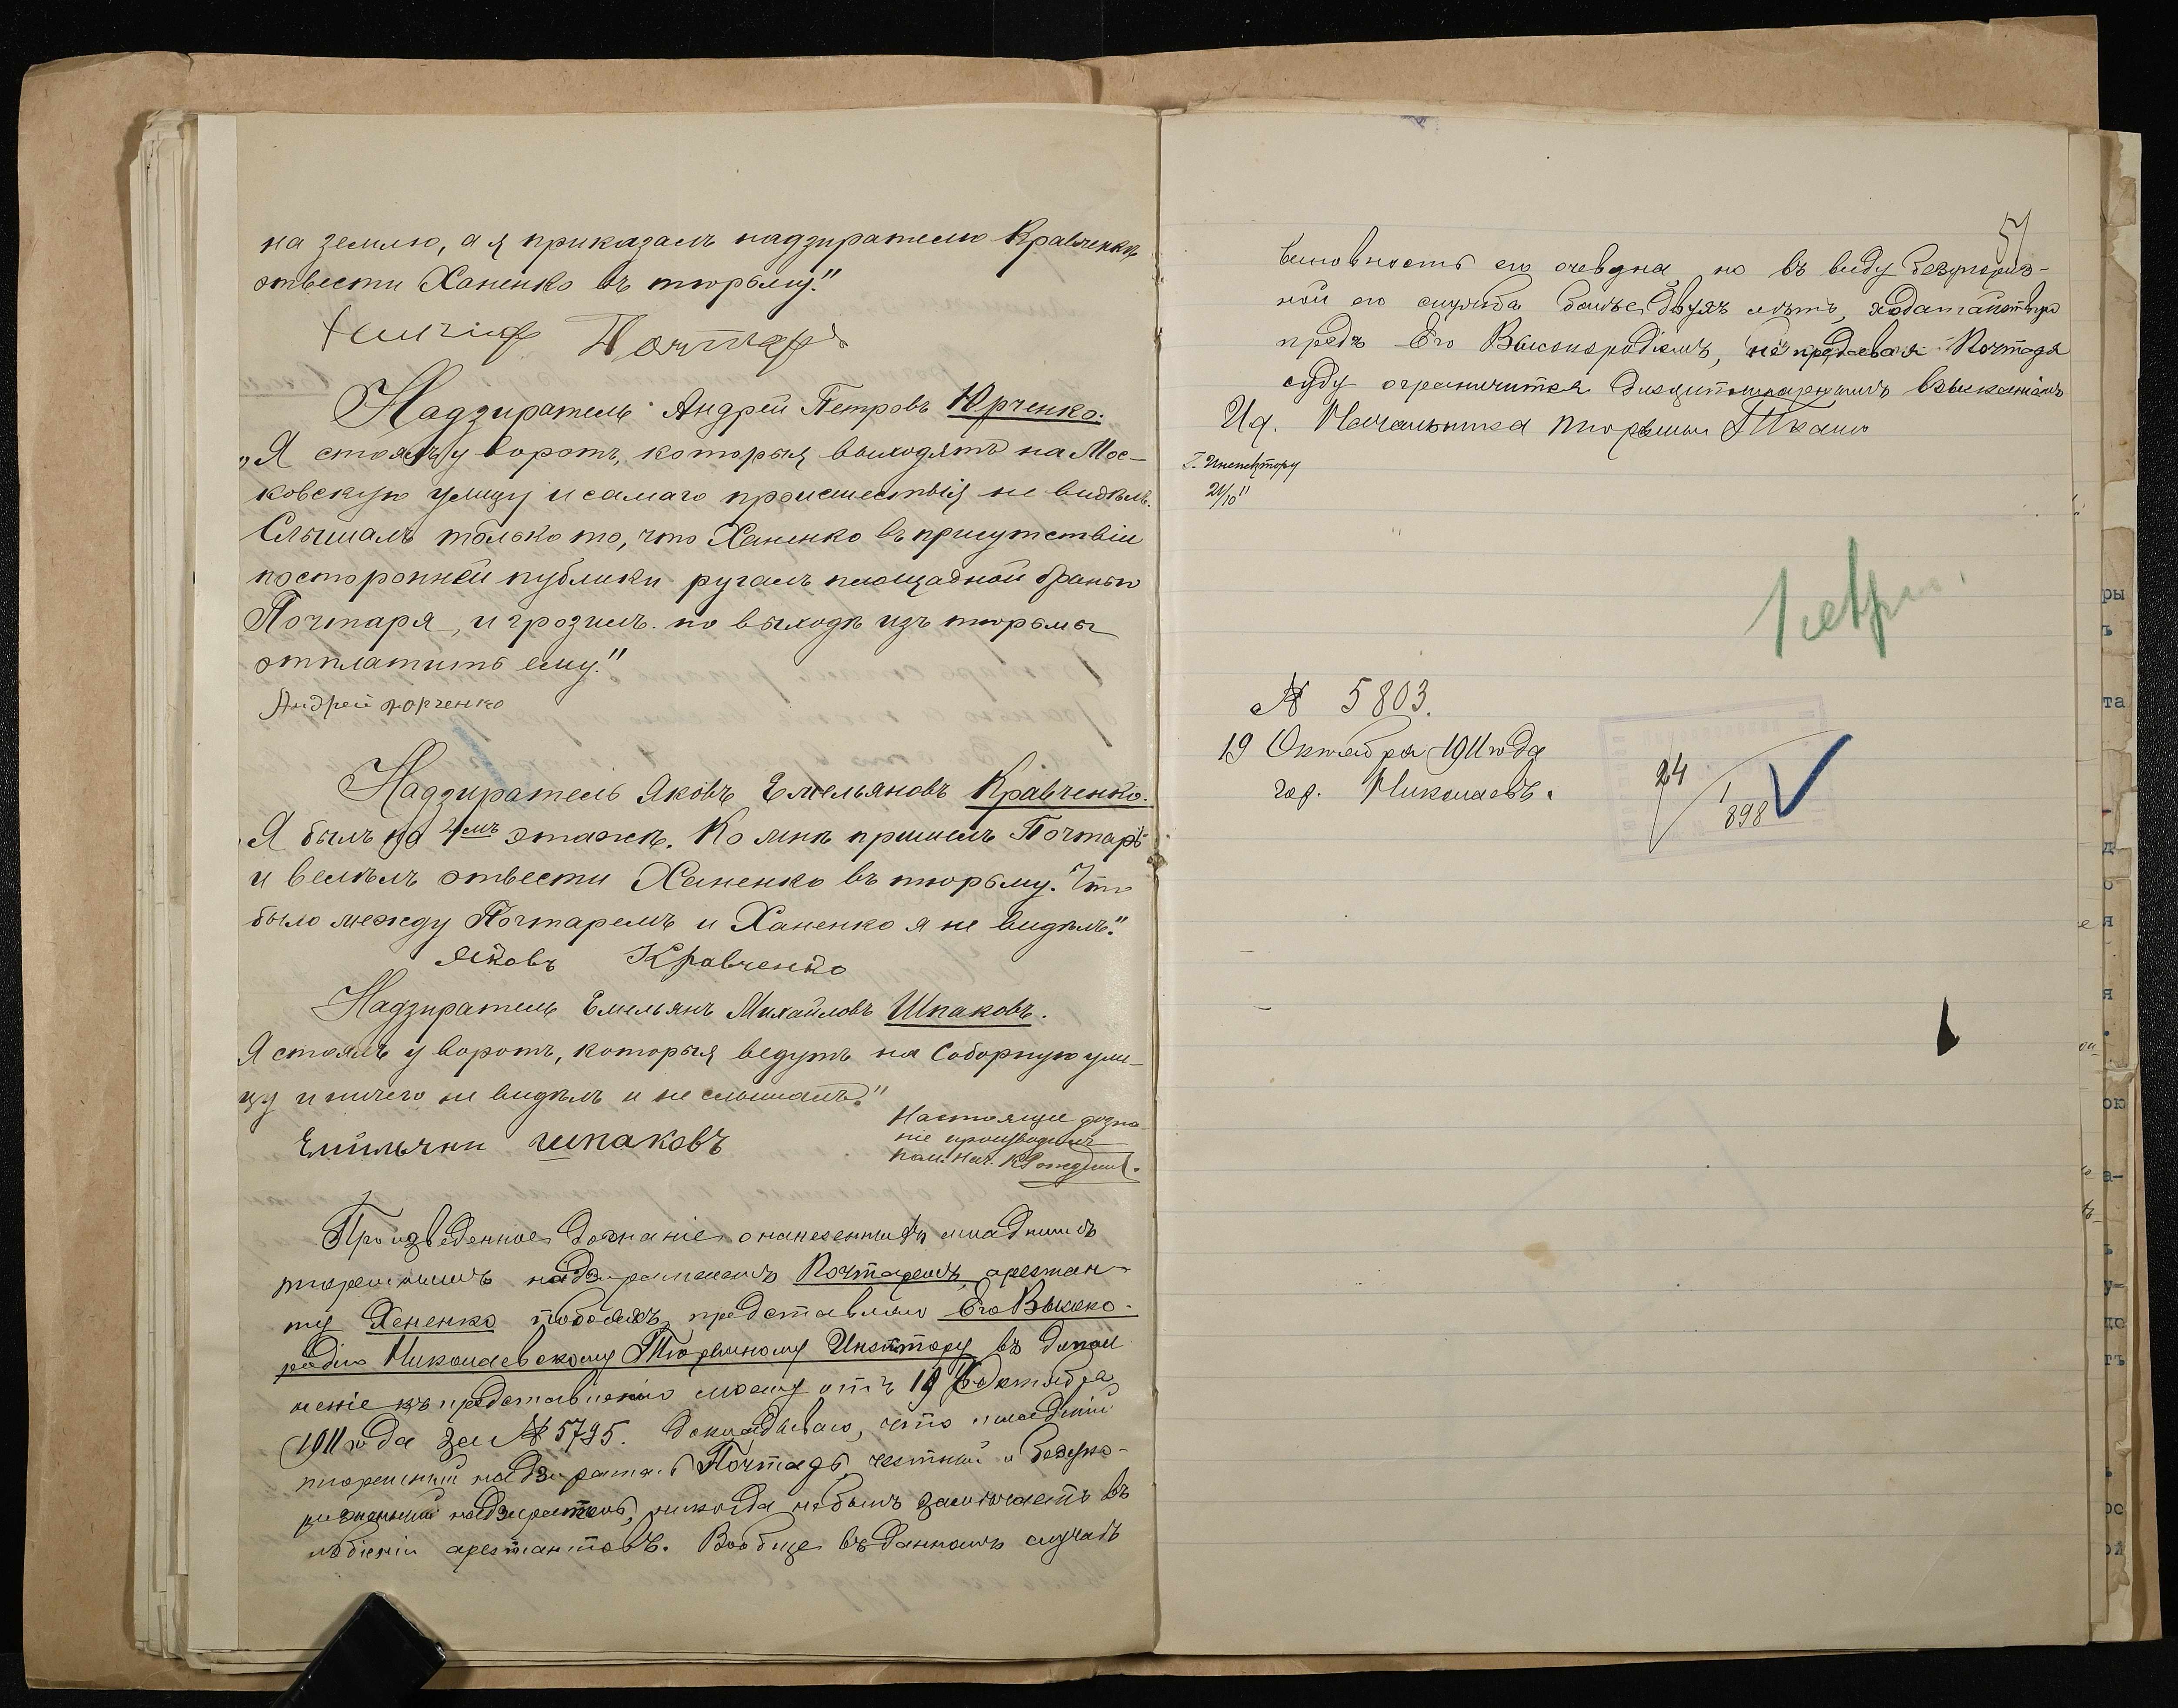 на землю, а я приказалъ надзирателю Кравченко
отвести Ханенко въ тюрьму."
Почтарь
Надзиратель Андрей Петровъ Юрченко.
"Я стоялъ у воротъ, которыя выходятъ на Мос-
ковскую улицу и самаго происшествія не видѣлъ.
Слышалъ только то, что Ханенко въ присутствіи
посторонней публики ругалъ площадной бранью
Почтаря, и грозилъ по выходѣ изъ тюрьмы
отплатить ему."
Андрей Юрченко
Надзиратель Яковъ Емельяновъ Кравченко.
"Я былъ на 4мъ этажѣ. Ко мнѣ пришелъ Почтарь
и велѣлъ отвести Ханенко въ тюрьму. Что
было между Почтаремъ и Ханенко я не видѣлъ."
Яковъ Кравченко
Надзиратель Емельянъ Михайловъ Шпаковъ.
Я стоялъ у воротъ, которыя ведутъ на Соборную ули-
цу и ничего не видѣлъ и не слышалъ."
Настоящее дозна-
ніе производилъ
Пом. Нач.
Емильянъ шпаковъ
Произведенное дознаніе о нанесенныхъ младшимъ
тюремнымъ надзирателемъ Почтаремъ, арестан-
ту Хененко побояхъ, представляю Его Высоко-
родію Николаевскому Тюремному Инспктору въ допол
неніе къ представленію моему отъ 19 Октября
1911 года за № 5795. докладываю, что младшій
тюремный надзиратель Почтарь, честный и безуко-
ризненный надзиратель, никогда небылъ замѣчаетъ въ
избіеніи арестантовъ. Вообще въ данномъ случаѣ
51
виновность его очевдна но въ виду безукориз-
ной его служба больѣе двухъ лѣтъ, ходатайствую
предъ Его Высокородіемъ, не предавая Почтаря
суду ограничится дисциплинарнымъ взысканіемъ
И д. Начальника тюрьмы Ткачъ
Г. Инспектору
21/10 11
№ 5803.
19 Октября 1911 года
гор. Николаевъ.
24
1
898